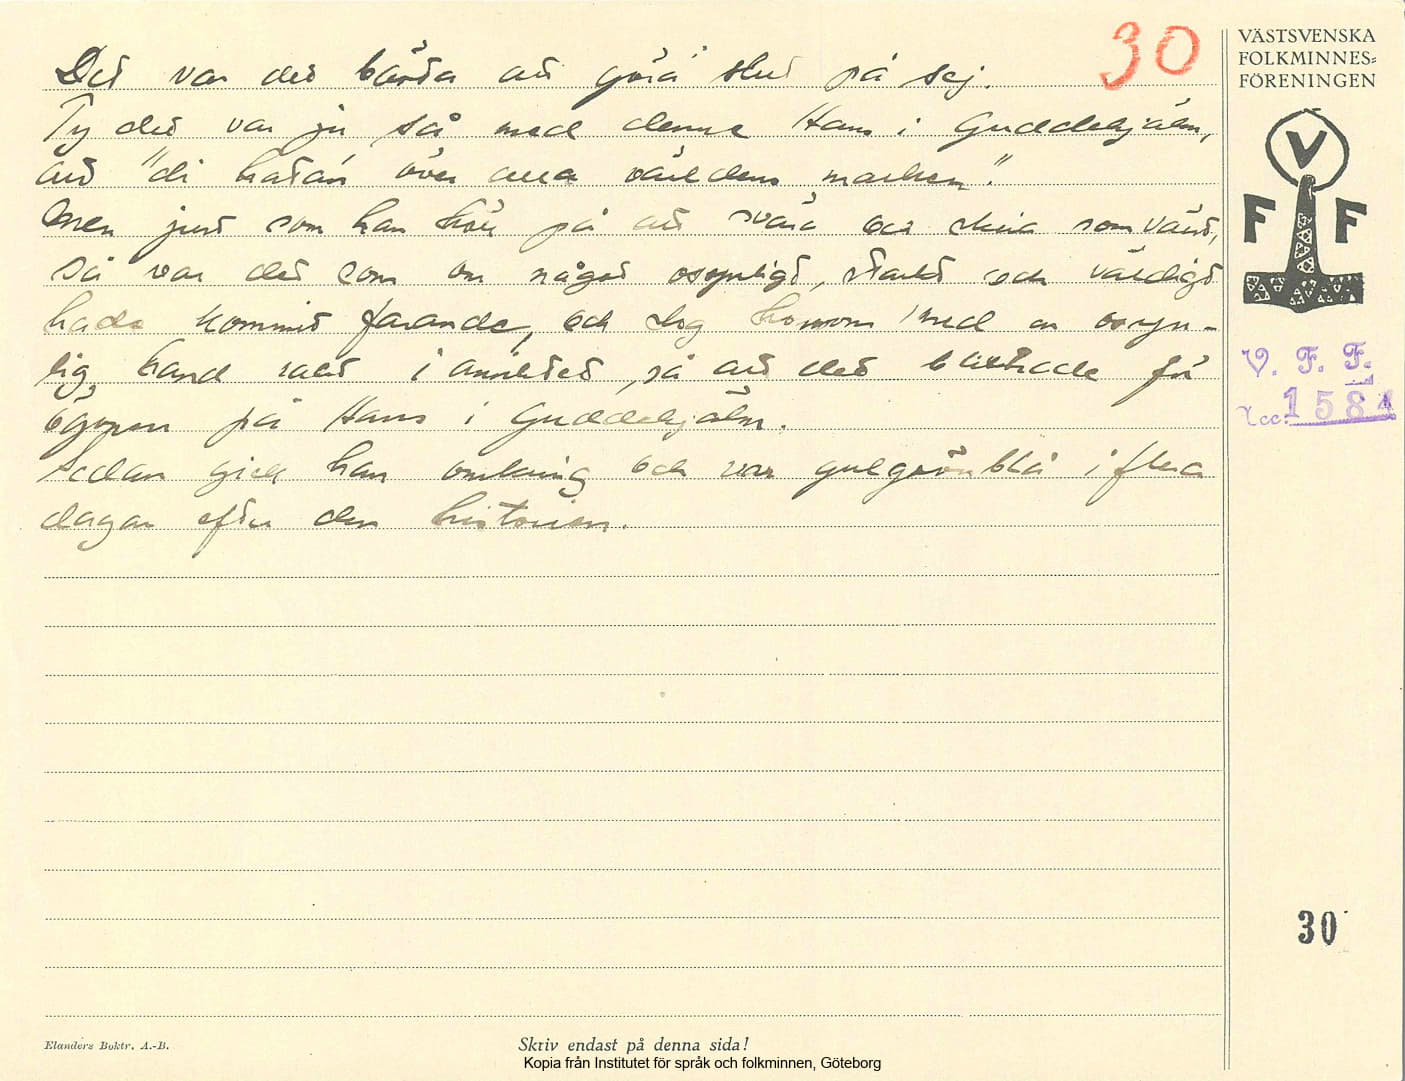 30
Det var det bästa att göra slut på sej.
Ty det var ju så med denne Hans i Guddehjälm,
att "di hatan över alla världens marker".
Men just som han höll på att svära och skria som värst,
så var det som om något osynligt, starkt och väldigt
hade kommit farande, och slog honom med en osyn-
lig hand rätt i ansiktet, så att det blixtrade för
ögonen på Hans i Guddehjälm.
Sedan gick han omkring och var gulgrönblå i flera
dagar efter den historien.
VÄSTSVENSKA
FOLKMINNES-
FÖRENINGEN
V
F F
V. F. F.
Acc: 1584
30
Elanders Boktr. A.-B.
Skriv endast på denna sida!
Kopia från Institutet för språk och folkminnen, Göteborg